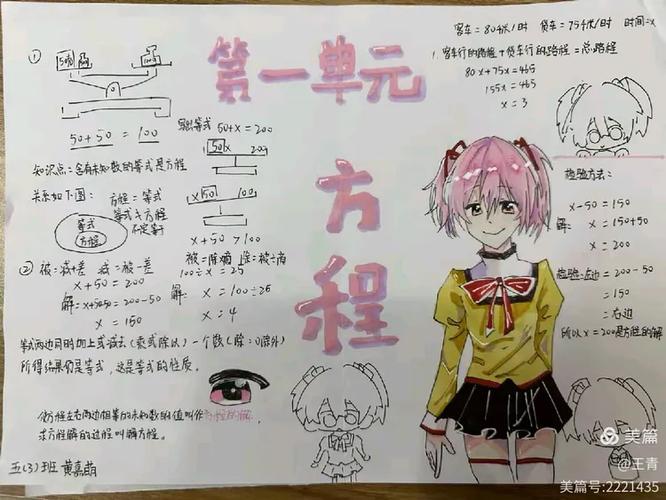 第一单元
方程
①
50g 50g 100g
50+50=100
写出等式 50+x=200
50 x 200
知识点:含有未知数的等式是方程
关系如下图:
方程=等式
等式≠方程
不完等于
等式
方程
x 50 100
x+50>100
② 被=减+差 减=被-差
x+50=200
解:x+50-50=200-50
x=150
被=除×商 除=被÷商
100÷x=25
解: x=100÷25
x=4
等式两边同时加上或减去(乘或除以)一个数(除:0除外)
所得结果仍是等式,这是等式的性质。
使方程左右两边相等的未知数的值叫作方程的解,
求方程解的过程叫解方程。
五(3)班 黄嘉萌
客车=80千米/时 货车=75千米/时 时间=x
1.客车行的路程+货车行的路程=总路程
80x+75x=465
155x=465
x=3
检验方法:
x-50=150
解: x=150+50
x=200
检验:左边=200-50
=150
=右边
所以x=200是方程的解
美篇
@王青
美篇号:2221435